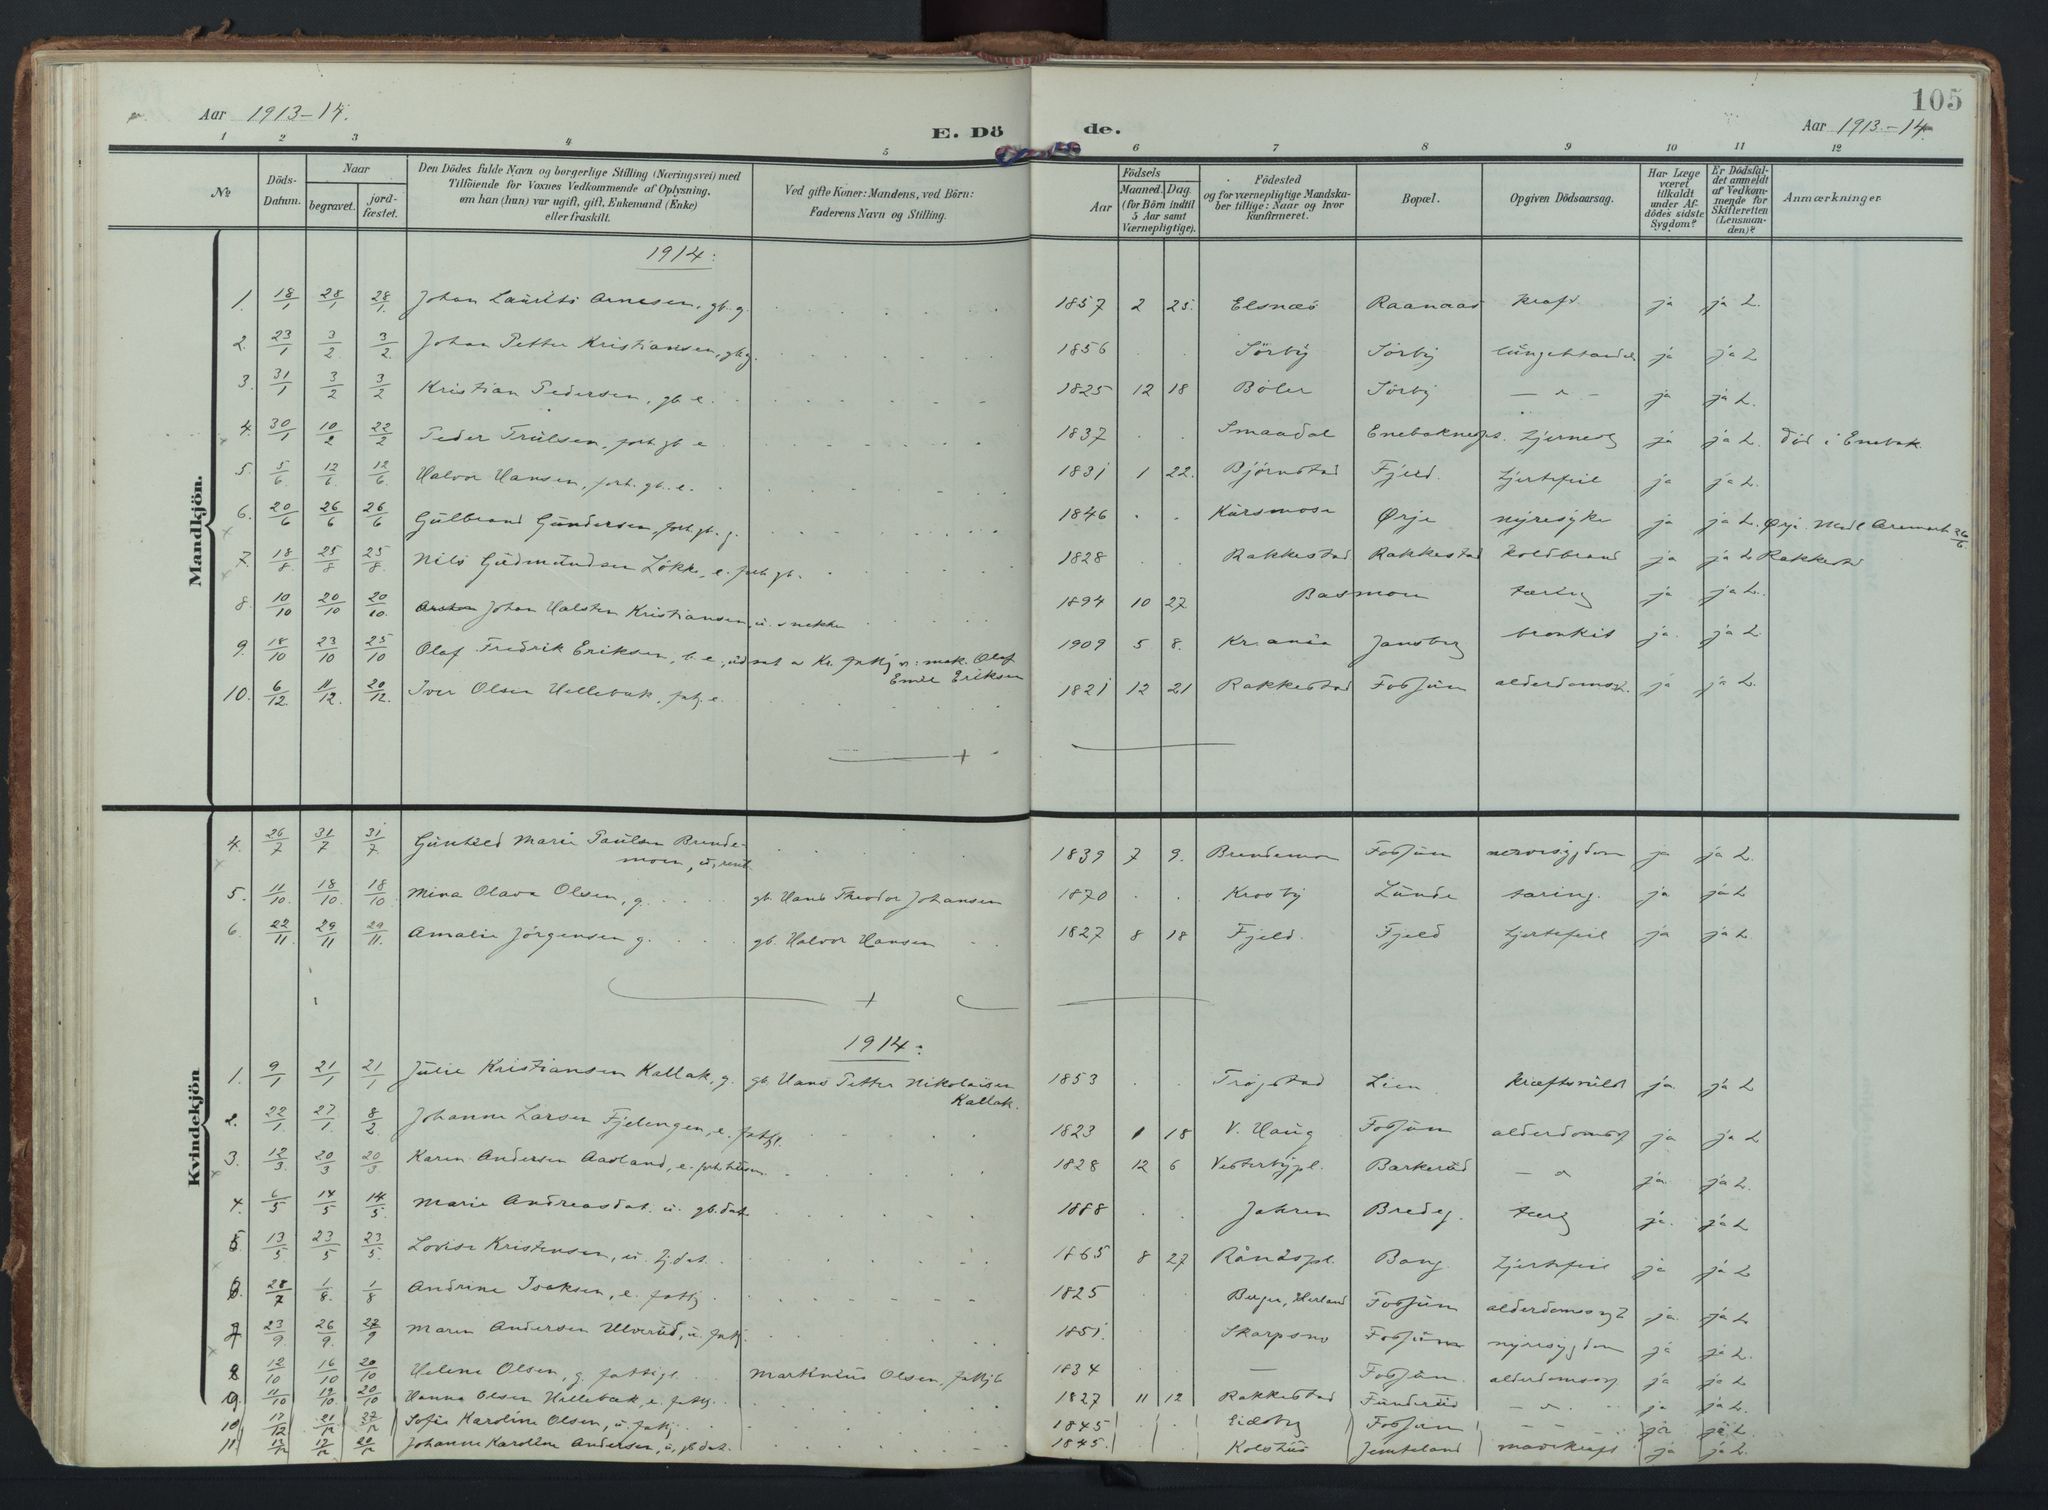 105
Aar 1913-14. E. Dö de. Aar 1913-14
1 2 3 4 5 6 7 8 9 10 11 12
№ Döds-Datum. Naar begravet. jord-fæstet. Den Dödes fulde Navn og borgerlige Stilling (Næringsvei) med Tilföiende for Voxnes Vedkommende af Oplysning, om han (hun) var ugift, gift, Enkemand (Enke) eller fraskilt. Ved gifte Koner: Mandens, ved Börn: Faderens Navn og Stilling. Aar Födsels Maaned. Dag. (for Börn indtil 5 Aar samt Værnepligtige). Födested og for værnepligtige Mandskaber tillige: Naar og hvor konfirmeret. Bopæl. Opgiven Dödsaarsag. Har Læge været tilkaldt under Afdödes sidste Sygdom? Er Dödsfaldet anmeldt af Vedkommende for Skifteretten (Lensmanden)? Anmærkninger
Mandkjön.
1914.
1. 18/1 28/1 28/1. Johan Laurits Arnesen, gb. g. 1857 2 25. Elsnæs Raanaas kræft ja ja L.
2. 23/1 3/2 3/2. Johan Petter Kristiansen, gb. g. 1856 Sörby Sörby ja ja L
3. 31/1 3/2 3/2 Kristian Pedersen, gb. e. 1825 12 18 Böler Sörby — " — ja ja L.
4. 30/1 10/2 22/2 Peder Trulsen, forh. gb. e 1837 Smaadal ja ja L. död i Enebak
5. 5/6 12/6 12/6. Halvor Hansen, forh. gb. e. 1831 1 22. Björnstad Fjeld. hjertefeil ja ja L.
6. 20/6 26/6 26/6 Gulbrand Gundersen, forh. gb. g. 1846 Kursmose Ørje nyresyke ja ja L. Ørje Aremark 26/6.
7. 18/8 25/8 25/8. Nils Gudmundsen Lökke, e. forh. gb. 1828 Rakkestad Rakkestad koldbrand ja ja L Rakkestad
8. 10/10 20/10 20/10. Johan Halsten Kristiansen, u. snekker 1894 10 27 Basmoen tæring ja ja L.
9. 18/10 23/10 25/10 Olaf Fredrik Eriksen, b. e., udsat a Kr. fattigv: mek. Olaf 1909 5 8. Kr.ania Jansberg bronkit ja. ja L.
Emil Eriksen
10. 6/12. 11/12. 20/12. Iver Olsen Hellebæk, fatt. e. 1821 12 21 Rakkestad Fossum alderdomss. ja ja L.
Kvindekjön
4. 26/7 31/7 31/7. Gunhild Marie Paulsen Brende-
moen, u, rent 1839 7 9. Brendemoen Fossum nervesygdom ja ja L.
5. 11/10. 18/10. 18/10 Mina Olava Olsen, g. gb. Hans Theodor Johansen 1870 Krosby Lunde tæring. ja ja L.
6. 22/11. 29/11 29/11. Amalie Jörgensen g. gb. Halvor Hansen 1827 8 18 Fjeld. Fjeld hjertefeil ja ja L.
1914.
1. 9/1 21/1 21/1 Julie Kristiansen Kallak, g. gb. Hans Petter Nikolaisen 1853 Trøgstad Lien kræftsvulst ja. ja L
Kallak.
2. 22/1. 27/1. 8/2 Johanne Larsen Fjelengen, e. fattigl. 1823 1 18 V. Haug Fossum alderdomss. ja ja L
3. 12/3. 20/3 20/3 Karen Andersen Aasland, e. forh. husm 1828 12 6 Vesterbypl. Barkerud — " ja. ja L
4. 6/5 14/5 14/5. Marie Andreasdat. u. gb. dat. 1888 Jahren Bredeg. tæring ja. ja L
5 13/5. 23/5 23/5. Lovise Kristensen, u. tj. dat. 1865 8 27 Rånåspl. Bang. hjertefeil ja ja L
6. 28/7 1/8. 1/8 Andrine Isaksen, e. fattig. 1825 Berger, Herland Fossum alderdomss. ja. ja L
7 23/9. 26/9. 27/9 Maren Andersen Ulverud, u. fatt. 1851. Skarpsno Fossum nyresygdom ja ja L.
8 12/10 16/10 20/10 Helene Olsen, g. fattigl. Markenius Olsen, fattigl. 1834 — Fossum. alderdomss. ja ja L
9. 11/10 19/10 20/10 Hanna Olsen Hellebæk, e. fattig. 1827 11 12 Rakkestad Funderud — " — ja ja L.
10 17/12 21/12 27/12 Sofie Karoline Olsen, u. fattig. 1845 Eidsberg Fossum — " — ja ja L
11. 12/12 17/12 20/12 Johanne Karoline Andersen, u, gb. dat. 1845. Kolshus Jemteland mavekræft ja ja L.